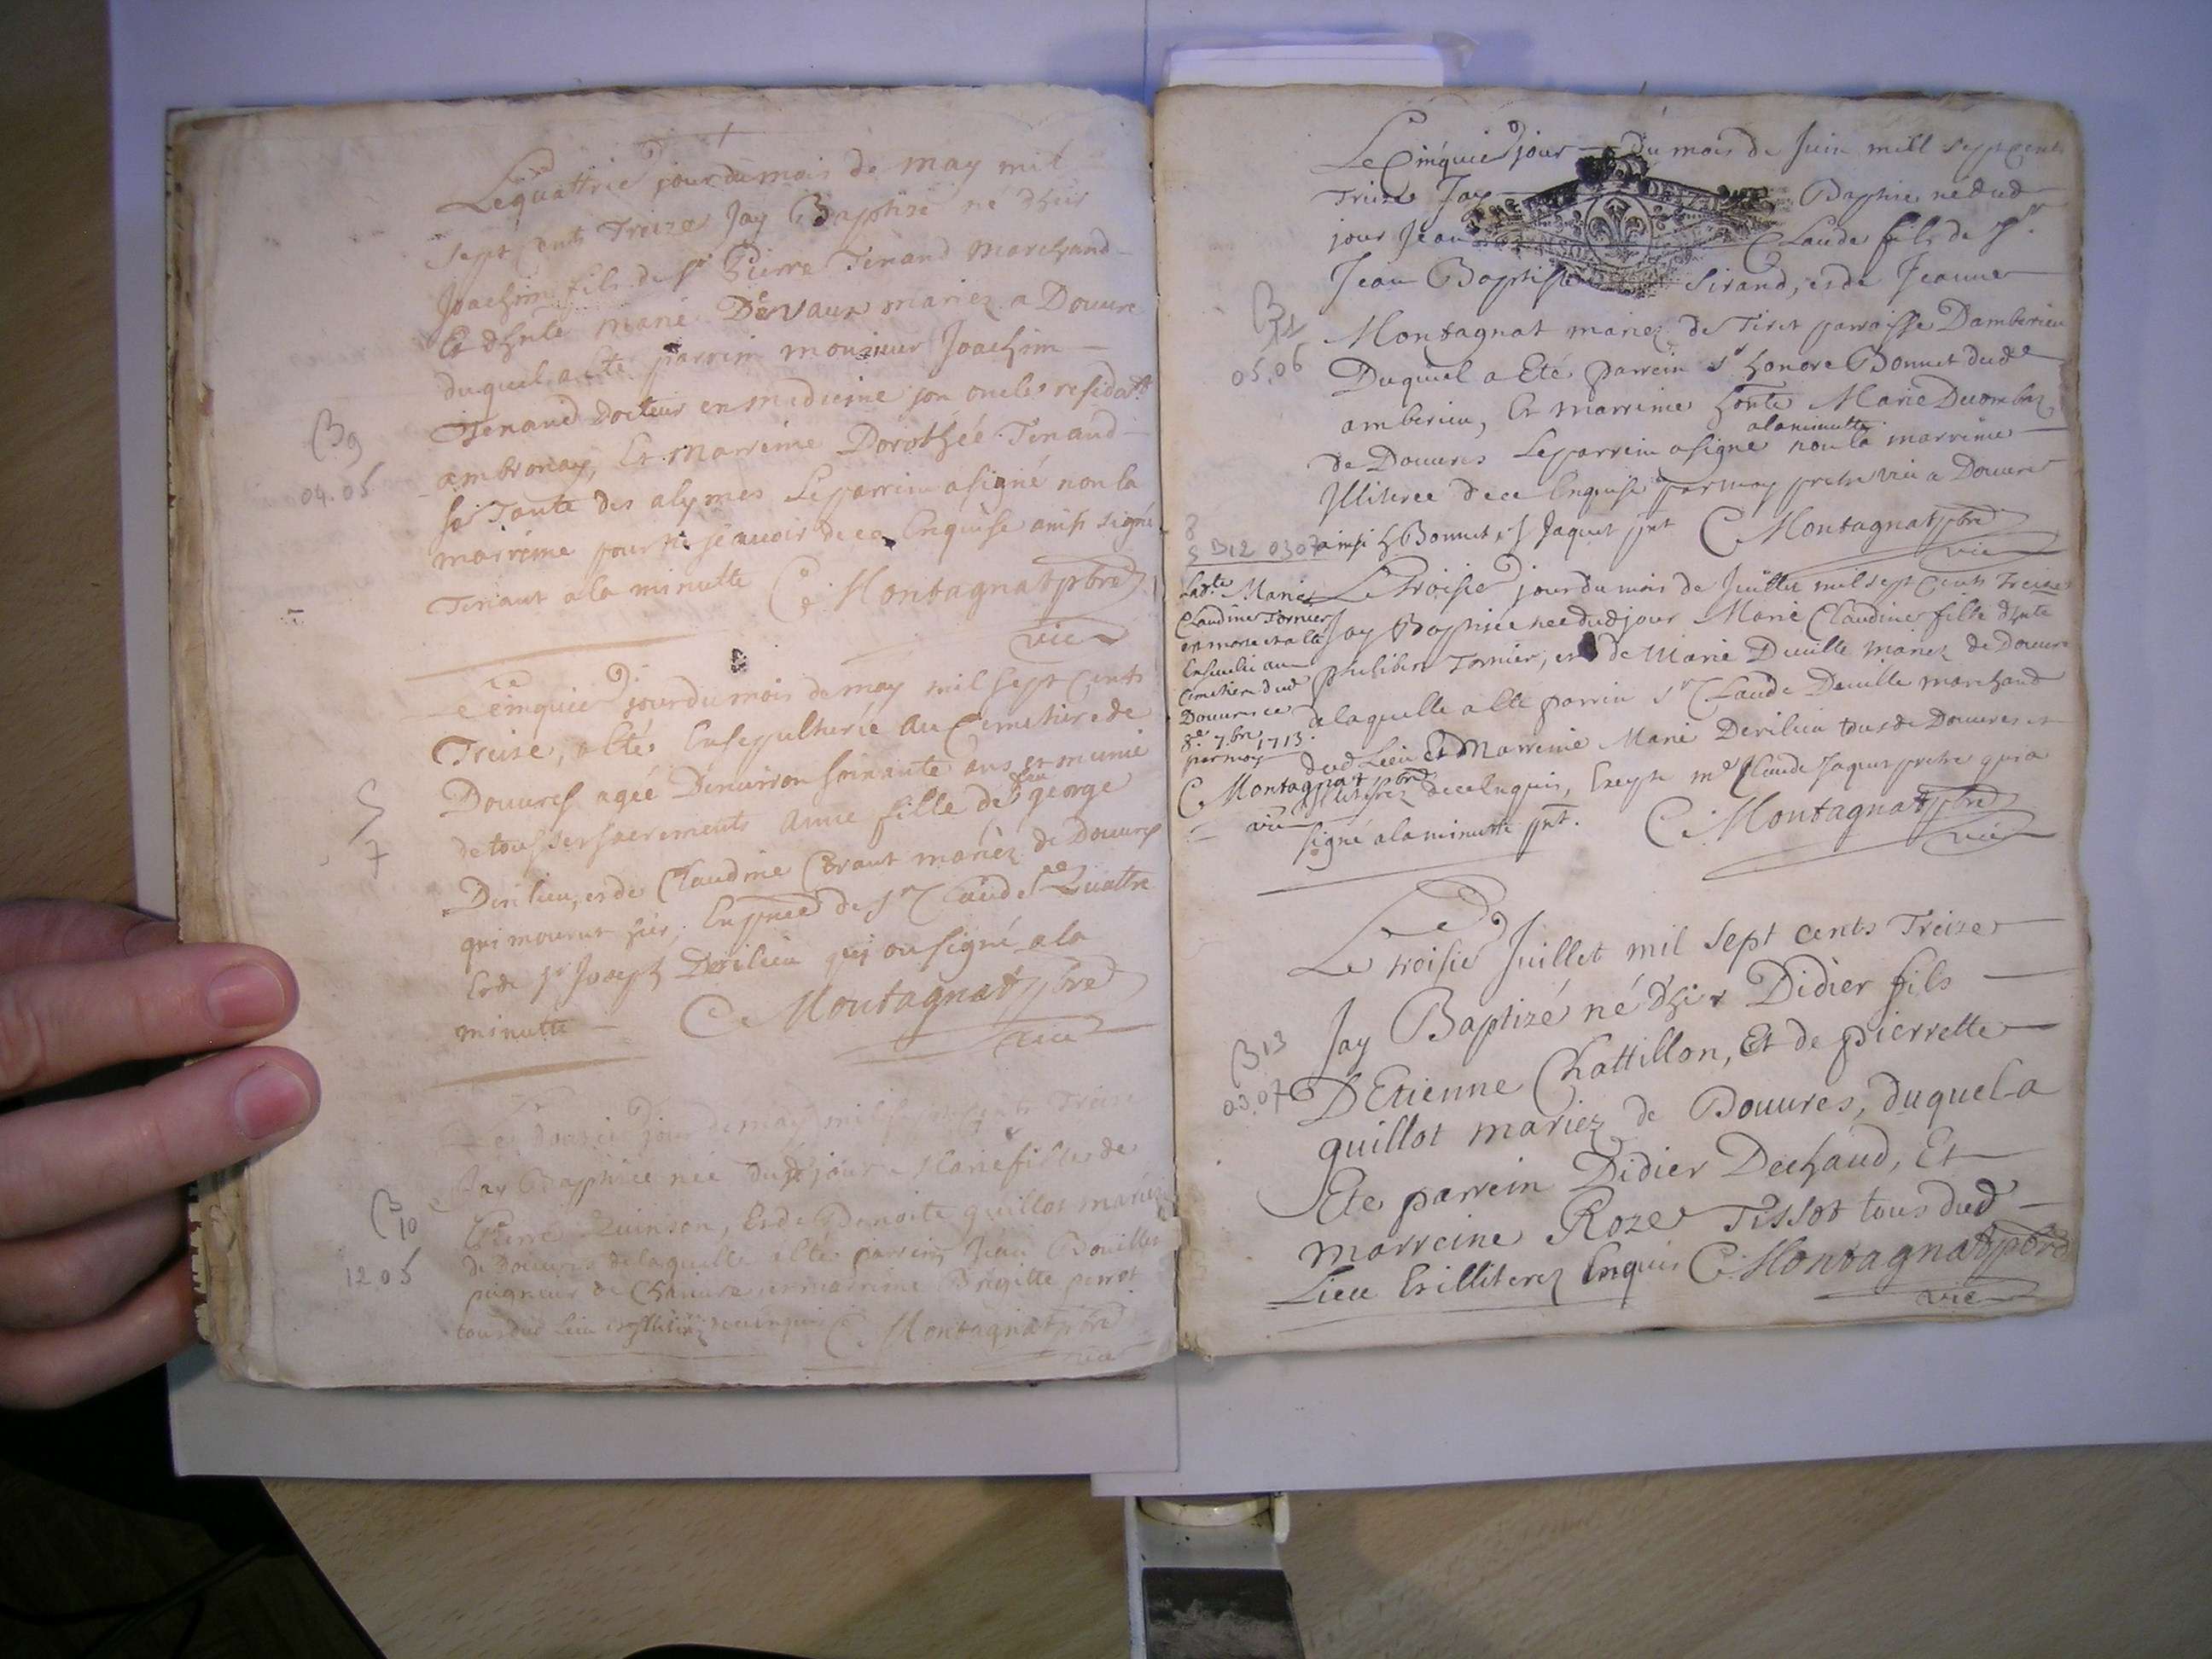 Le quattrie jour du mois de may mil
sept cents Treize Jay Baptisé né dhier
Joachim fils de sr Pierre Tenand marchand
Et dhnte Marie Devaux mariez a Douure
duquel a Eté parrein monsieur Joachim
Tenand Docteur en medicine son oncle residant
B9
ambronay, Et Marreine Dorothée Tenand
04.05
sa Tante des alymes Le parrein a signé non la
marreine pour ne scauoir de ce Enquise ainsi signé
Tenant a la minutte C Montagnat pbre
vic
Le cinquie jour du mois de may mil sept cents
Treize, a Eté Ensepulturée au Cemetiere de
Douures agée Denuiron soixante ans et munie
S
7
de tous ses sacrements Anne fille de feu george
Derilieu, et de Claudine Braut mariez de Douures
qui mourut hier, En pnce de sr Claude Quattre
Et de sr Joseph Derilieu qui ont signé a la
minutte C Montagnat pbre
vic
Le douzie jour de may mil sept cents Treize
Jay Baptisée née dud jour Marie fille de
B10
Pierre Quinson, Et de Benoite guillot mariez
de Douures de laquelle a Eté parrein Jean Bouillet
12.05
peigneur de Chanure et marreine Brigitte perrot
tous dud Lieu et illiterez de ce enquis C Montagnat pbre
vic
Le Cinquie jour du mois de Juin mill sept cents
Treize Jay Baptise né dud
jour Jean Claude fils de sr
Jean Baptiste Sirand, et de Jeanne
B11
Montagnat mariez de Tiret parroisse Damberieu
05.06
Duquel a Eté parrein sr honore Bonnet dud
amberieu, Et marreine honte Marie Ducombaz
a la minutte
de Douures Le parrein a signé non la marreine
Illiteree de ce Enquise par moy pretre vic a Douures
ainsi h Bonnet, J Jaquet pnt C Montagnat pbre
vic
8
S B12 03 07
Lad.te Marie
Claudine Tornier
est morte et a Eté
Enseuelie au
Cimetiere dud
Douures ce
8e 7.bre 1713.
par moy
C Montagnat pbre
vic
Le troisie jour du mois de Juillet mil sept cents treize
Jay Baptisée née dud jour Marie Claudine fille dhnte
philibert Tornier, et de Marie Deuille mariez de Douure
de laquelle a Eté parrein sr Claude Deuille marchand
dud Lieu Et Marreine Marie Derilieu tous de Douures et
illiterez de ce Enquis, Exepte me Claude Jaquet pretre qui a
signé a la minutte pnt. C Montagnat pbre
vic
Le troisie Juillet mil sept cents Treize
Jay Baptizé né dhier Didier fils
B13
03.07
D Etienne Chattillon, Et de pierrette
guillot mariez de Douures, duquel a
Ete parrein Didier Dechaud, Et
marreine Roze Tissot tous dud
Lieu Et illiterez Enquis C Montagnat pbre
vic